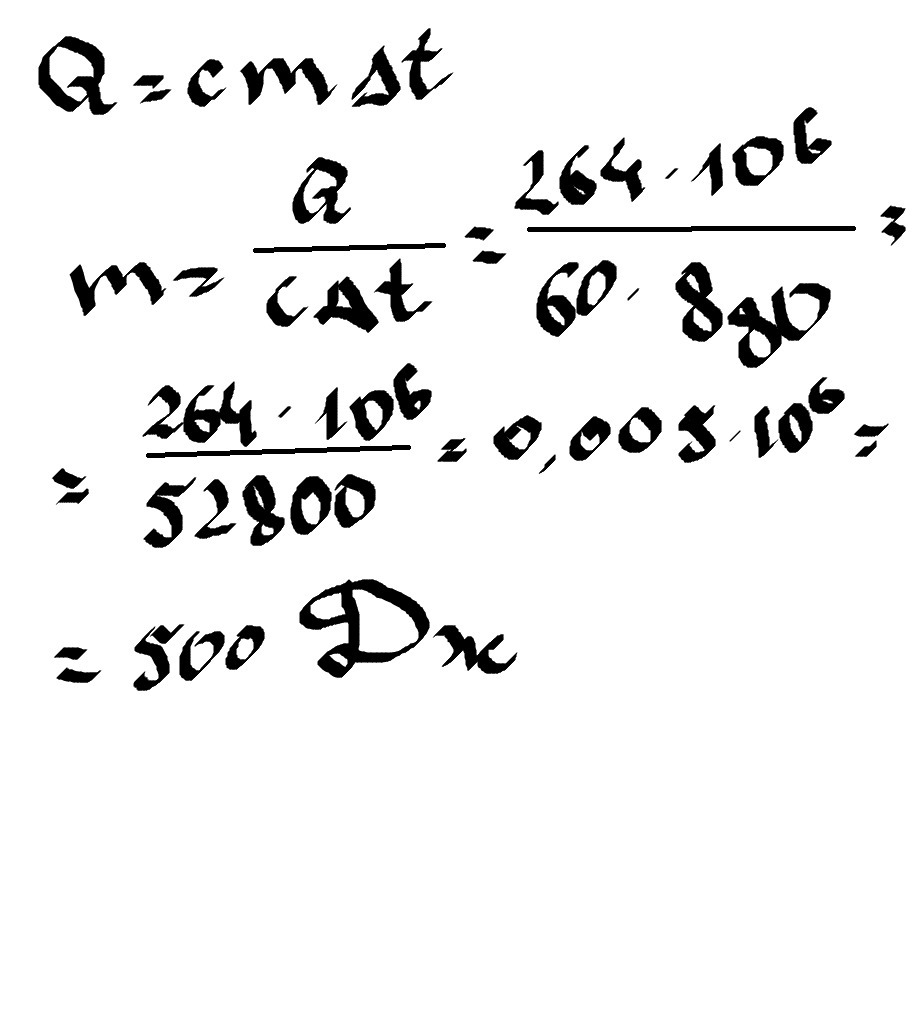 Q = cmΔt
m = Q / cΔt = 264 · 10⁶ / 60 · 880 =
= 264 · 10⁶ / 52800 = 0,005 · 10⁶ =
= 500 Дж